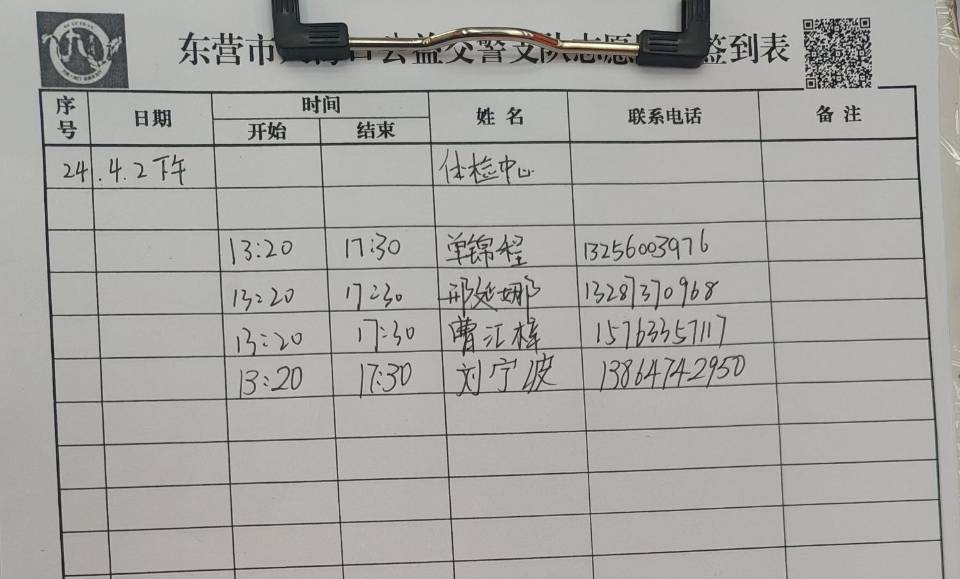 东营市 公益交警支队志愿 签到表
序号 日期 时间 姓名 联系电话 备注
开始 结束
24.4.2下午 体检中心
13:20 17:30 单锦程 13256003976
13:20 17:30 邢延娜 13287370968
13:20 17:30 曹江梅 15763357117
13:20 17:30 刘宁波 13864742950